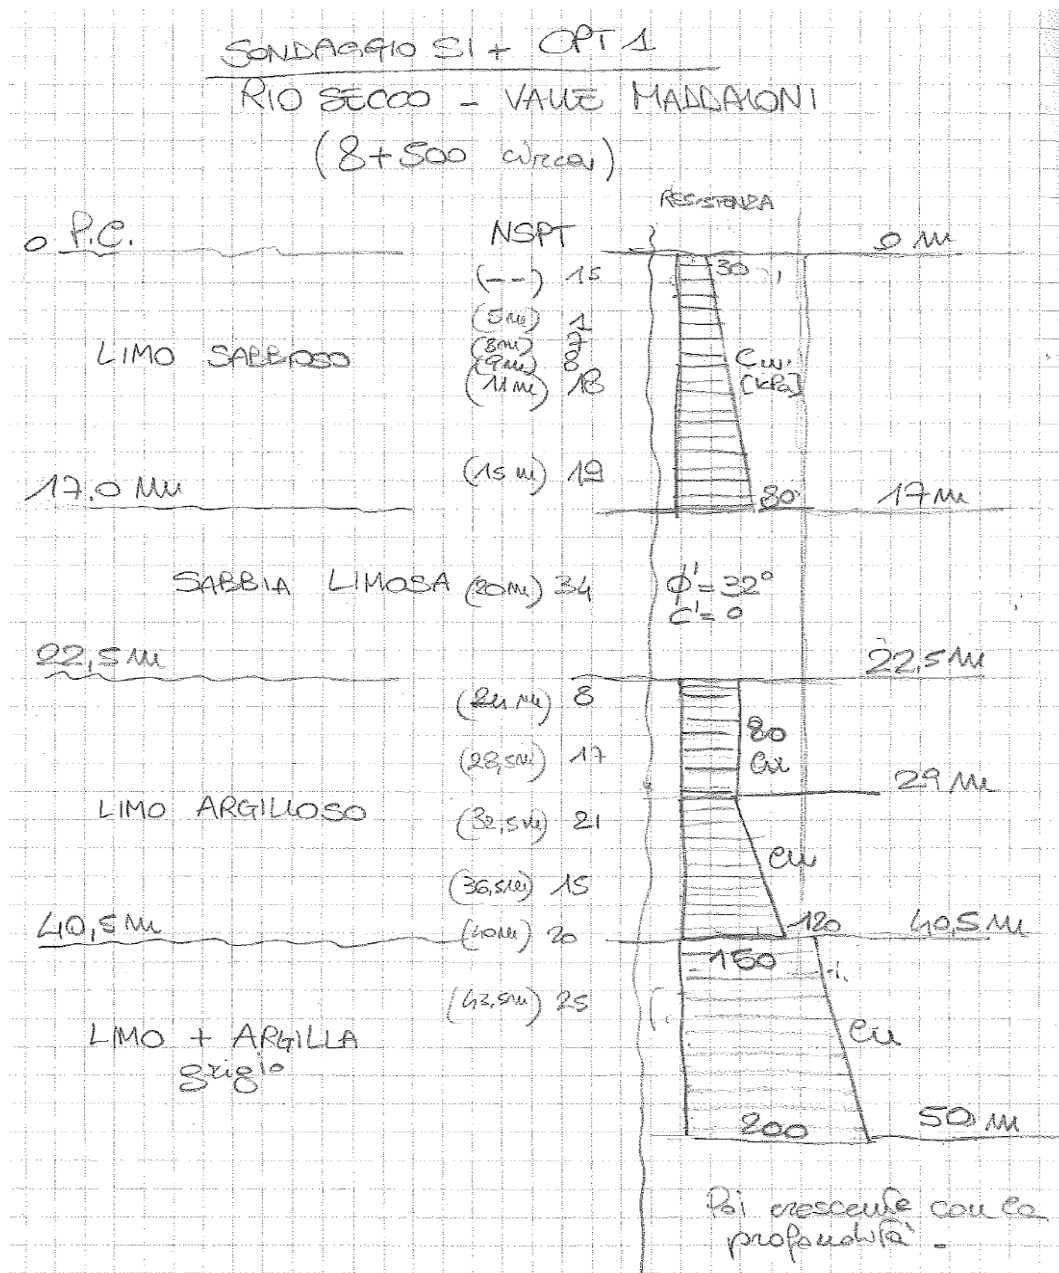 SONDAGGIO S1 + CPT 1
RIO SECCO - VALLE MADDALONI
(8+500 circa)
RESISTENZA
0 P.C. NSPT 0 m
(--) 15 30
(5m) 1
LIMO SABBIOSO (8m) 7
(9m) 8 Cu
(11m) 18 [kPa]
(15m) 19
17.0 m 80 17 m
SABBIA LIMOSA (20m) 34 φ'= 32°
C'= 0
22,5 m 22,5 m
(24 m) 8 80
(28,5m) 17 Cu
29 m
LIMO ARGILLOSO (32,5m) 21
Cu
(36,5m) 15
40,5 m (40m) 20 120 40,5 m
150
(43,5m) 25
LIMO + ARGILLA Cu
grigio
200 50 m
Poi crescente con la
profondità -